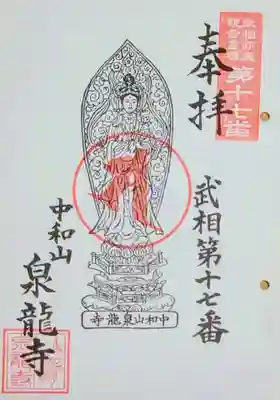 第十七番
奉拝
武相第十七番
中和山泉龍寺
中和山
泉龍寺